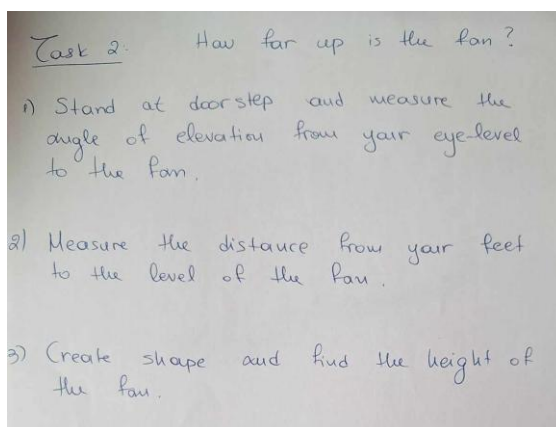 Task 2. How far up is the fan?
1) Stand at doorstep and measure the
angle of elevation from your eye-level
to the fan.
2) Measure the distance from your feet
to the level of the fan.
3) Create shape and find the height of
the fan.